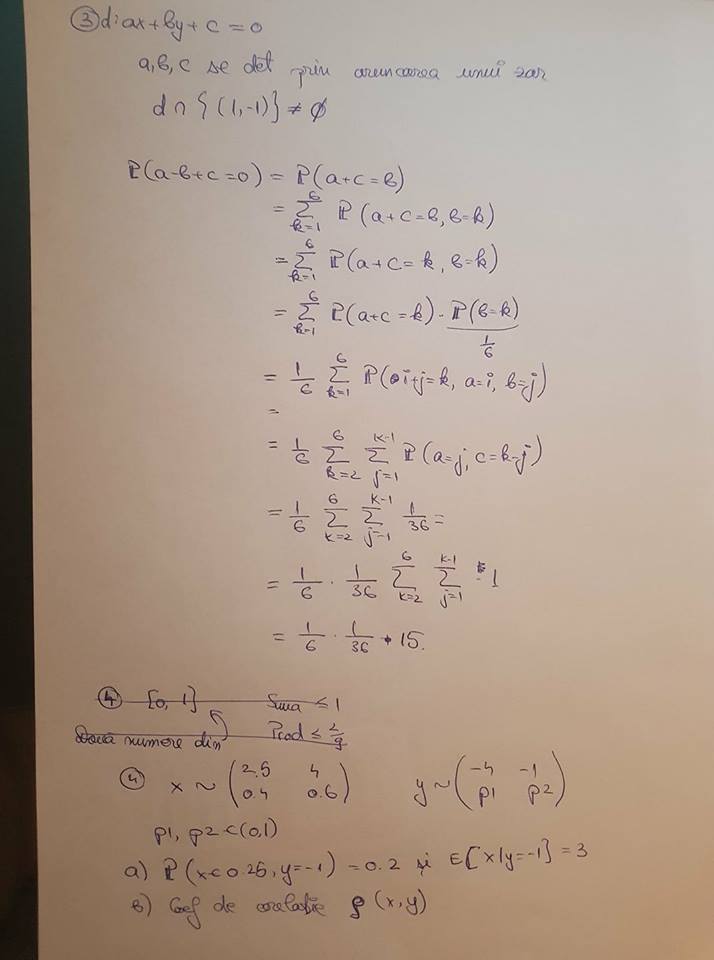 ③ d: ax+by+c=0
a,b,c se det prin aruncarea unui zar
d ∩ {(1,-1)} ≠ ∅
P(a-b+c=0) = P(a+c=b)
= ∑_{k=1}^{6} P(a+c=b, b=k)
= ∑_{k=1}^{6} P(a+c=k, b=k)
= ∑_{k=1}^{6} P(a+c=k) · P(b=k)
1/6
= 1/6 ∑_{k=1}^{6} P(i+j=k, a=i, b=j)
=
= 1/6 ∑_{k=2}^{6} ∑_{j=1}^{k-1} P(a=j, c=k-j)
= 1/6 ∑_{k=2}^{6} ∑_{j=1}^{k-1} 1/36 =
= 1/6 · 1/36 ∑_{k=2}^{6} ∑_{j=1}^{k-1} 1
= 1/6 · 1/36 · 15.
④ [0, 1] Suma ≤ 1
Două numere din Prod ≤ 2/9
④ x ~ (2.5 4 / 0.4 0.6) y ~ (-4 -1 / p1 p2)
p1, p2 ∈ (0,1)
a) P(x<0.25, y=-1) = 0.2 și E[x|y=-1] = 3
b) Coef de corelație ρ(x,y)